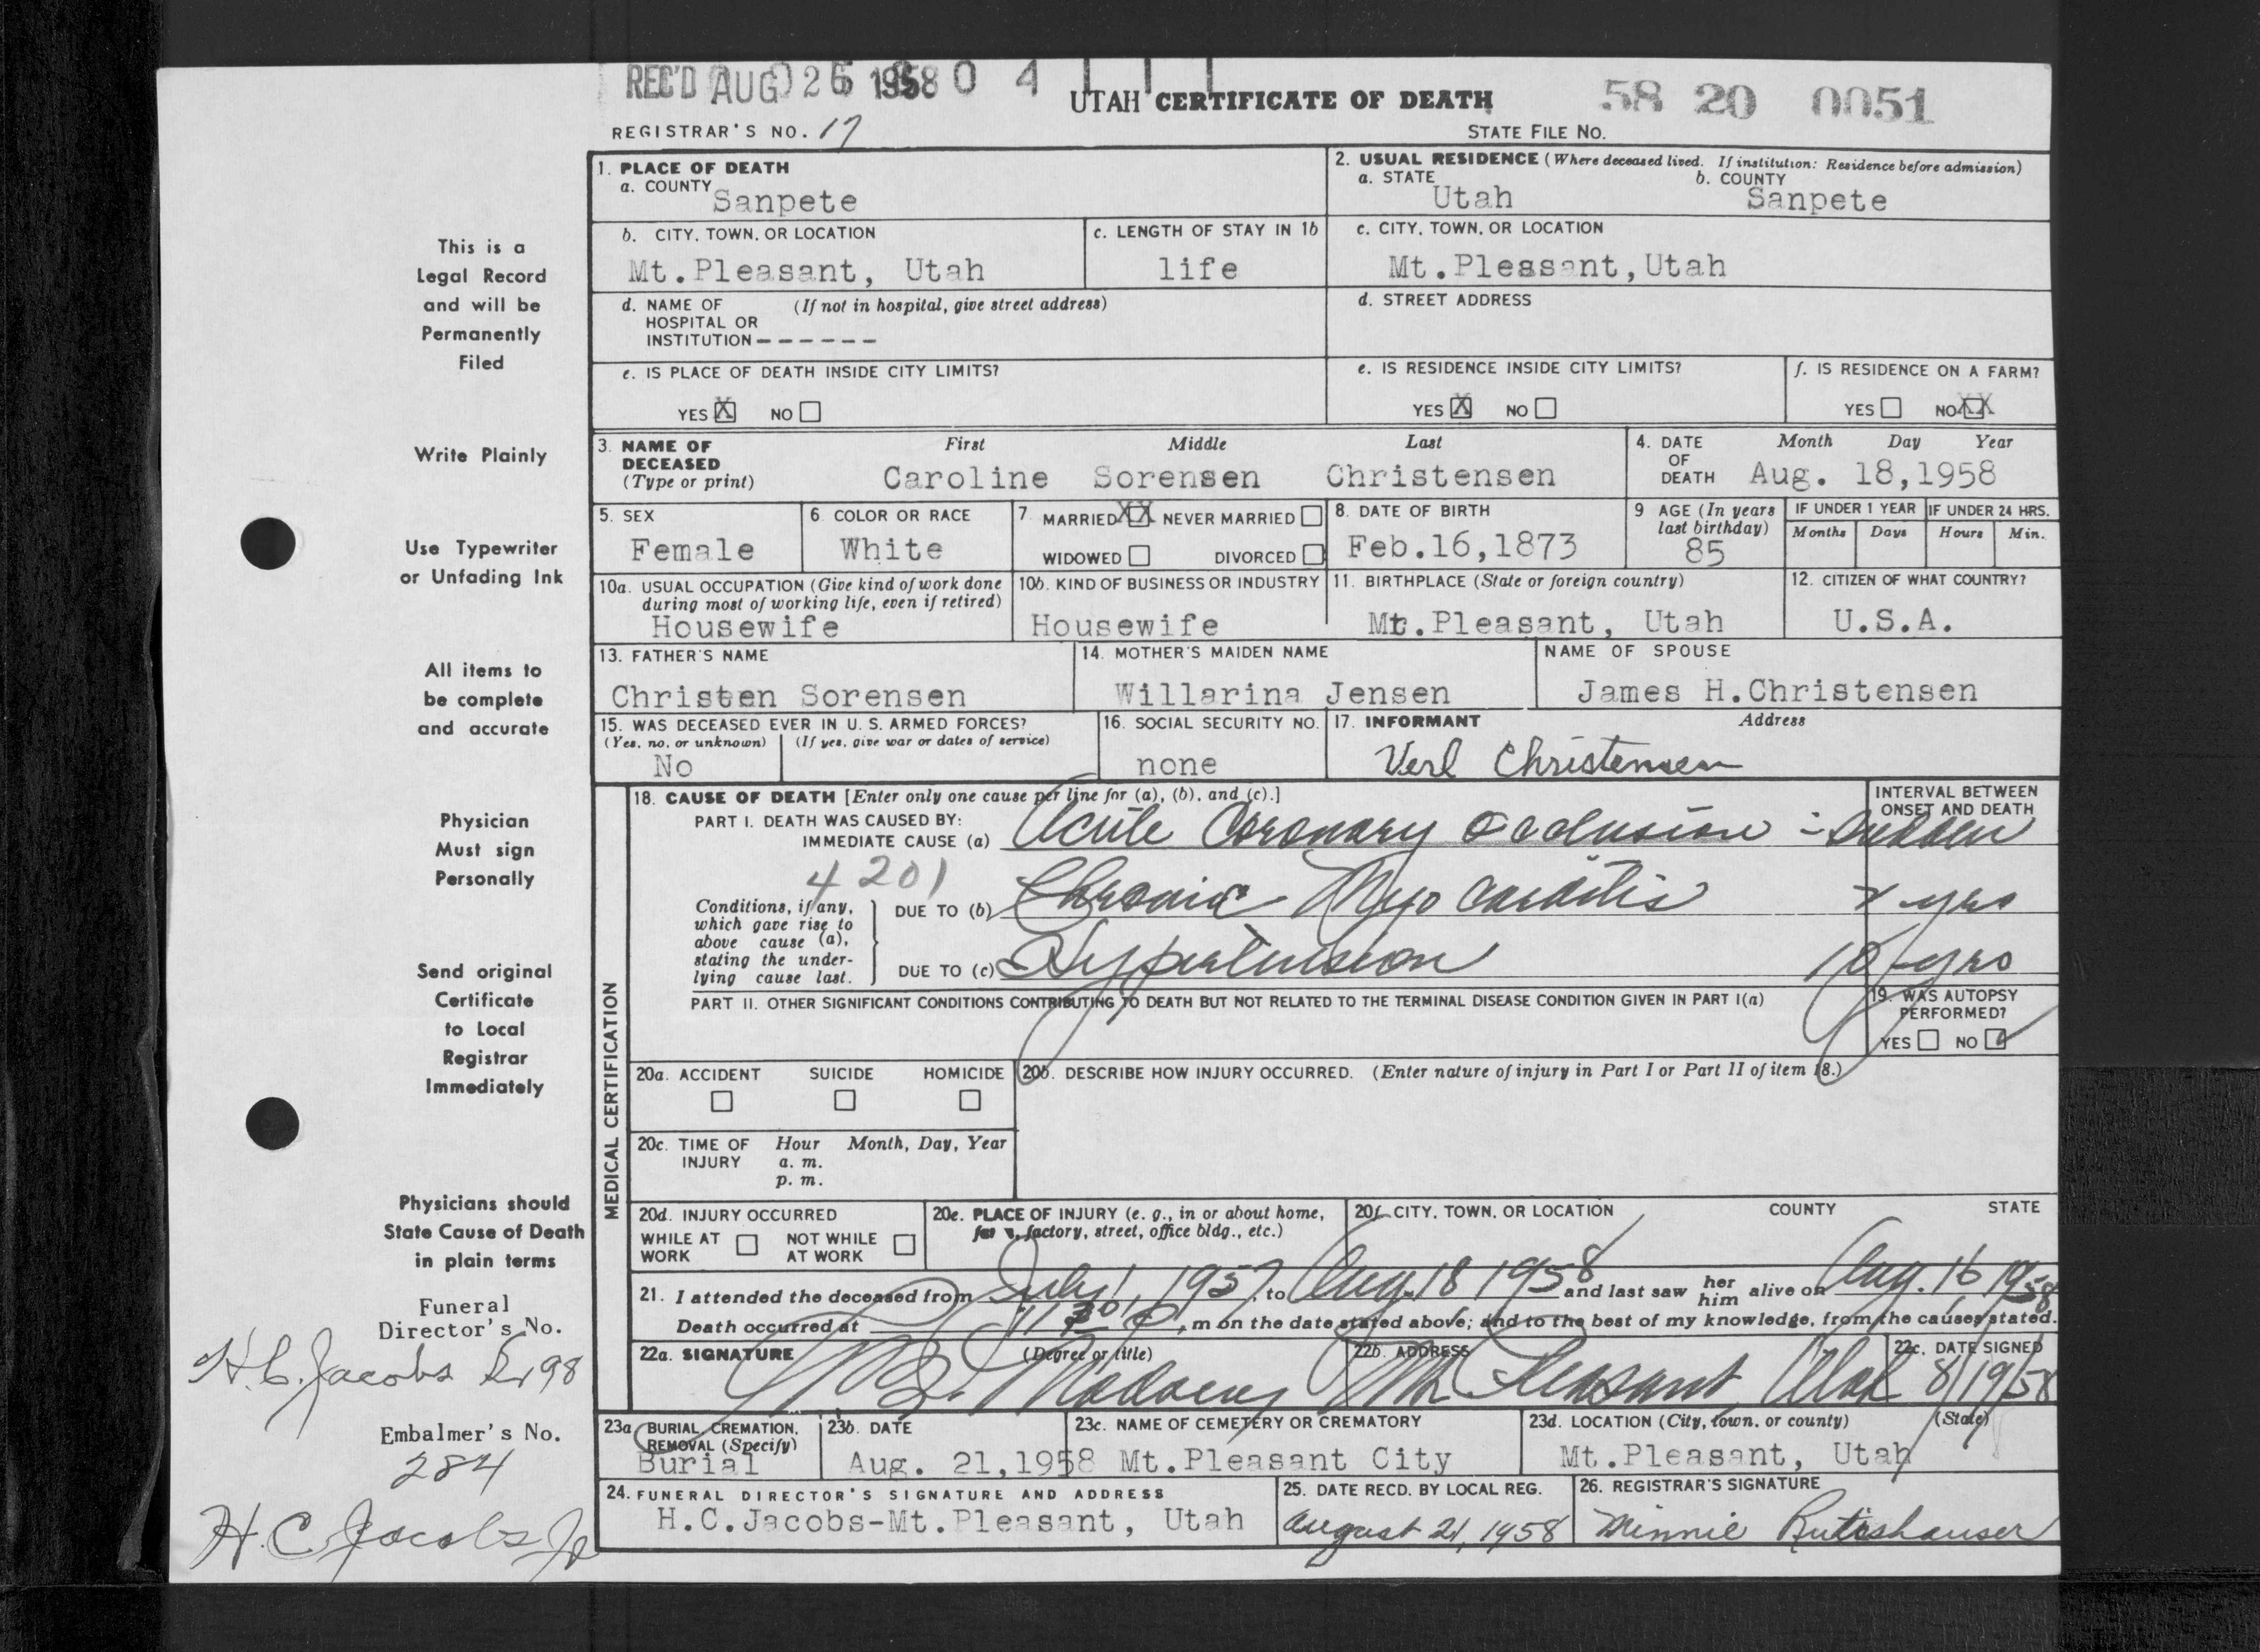 REC'D AUG 26 1958 0 4
UTAH CERTIFICATE OF DEATH
58 20 0051
REGISTRAR'S NO. 17
STATE FILE NO.
This is a
Legal Record
and will be
Permanently
Filed
Write Plainly
Use Typewriter
or Unfading Ink
All items to
be complete
and accurate
Physician
Must sign
Personally
Send original
Certificate
to Local
Registrar
Immediately
Physicians should
State Cause of Death
in plain terms
Funeral
Director's No.
H.C. Jacobs 98
Embalmer's No.
284
H.C. Jacobs Jr
1. PLACE OF DEATH
a. COUNTY
Sanpete
2. USUAL RESIDENCE (Where deceased lived. If institution: Residence before admission)
a. STATE b. COUNTY
Utah Sanpete
b. CITY, TOWN, OR LOCATION
Mt.Pleasant, Utah
c. LENGTH OF STAY IN 1b
life
c. CITY, TOWN, OR LOCATION
Mt.Pleasant,Utah
d. NAME OF (If not in hospital, give street address)
HOSPITAL OR
INSTITUTION ------
d. STREET ADDRESS
e. IS PLACE OF DEATH INSIDE CITY LIMITS?
YES X NO
e. IS RESIDENCE INSIDE CITY LIMITS?
YES X NO
f. IS RESIDENCE ON A FARM?
YES NO XX
3. NAME OF
DECEASED
(Type or print)
First Middle Last
Caroline Sorensen Christensen
4. DATE
OF
DEATH
Month Day Year
Aug. 18,1958
5. SEX
Female
6. COLOR OR RACE
White
7. MARRIED XX NEVER MARRIED
WIDOWED DIVORCED
8. DATE OF BIRTH
Feb.16,1873
9 AGE (In years
last birthday)
85
IF UNDER 1 YEAR
Months Days
IF UNDER 24 HRS.
Hours Min.
10a. USUAL OCCUPATION (Give kind of work done
during most of working life, even if retired)
Housewife
10b. KIND OF BUSINESS OR INDUSTRY
Housewife
11. BIRTHPLACE (State or foreign country)
Mt.Pleasant, Utah
12. CITIZEN OF WHAT COUNTRY?
U.S.A.
13. FATHER'S NAME
Christen Sorensen
14. MOTHER'S MAIDEN NAME
Willarina Jensen
NAME OF SPOUSE
James H.Christensen
15. WAS DECEASED EVER IN U. S. ARMED FORCES?
(Yes, no, or unknown) (If yes, give war or dates of service)
No
16. SOCIAL SECURITY NO.
none
17. INFORMANT Address
Verl Christensen
MEDICAL CERTIFICATION
18. CAUSE OF DEATH [Enter only one cause per line for (a), (b), and (c).]
INTERVAL BETWEEN
ONSET AND DEATH
PART I. DEATH WAS CAUSED BY:
IMMEDIATE CAUSE (a) Acute Coronary Occlusion - Sudden
4201
Conditions, if any,
which gave rise to
above cause (a),
stating the under-
lying cause last.
DUE TO (b) Chronic Myocarditis yrs
DUE TO (c) Hypertension 10 yrs
PART II. OTHER SIGNIFICANT CONDITIONS CONTRIBUTING TO DEATH BUT NOT RELATED TO THE TERMINAL DISEASE CONDITION GIVEN IN PART I(a)
19. WAS AUTOPSY
PERFORMED?
YES NO
20a. ACCIDENT SUICIDE HOMICIDE
20b. DESCRIBE HOW INJURY OCCURRED. (Enter nature of injury in Part I or Part II of item 18.)
20c. TIME OF Hour Month, Day, Year
INJURY a. m.
p. m.
20d. INJURY OCCURRED
WHILE AT WORK NOT WHILE AT WORK
20e. PLACE OF INJURY (e. g., in or about home,
farm, factory, street, office bldg., etc.)
20f. CITY, TOWN, OR LOCATION COUNTY STATE
21. I attended the deceased from July 1, 1957, to Aug. 18 1958 and last saw her him alive on Aug. 16 1958
Death occurred at 11:30 P, m on the date stated above; and to the best of my knowledge, from the causes stated.
22a. SIGNATURE (Degree or title)
22b. ADDRESS
Mt Pleasant Utah
22c. DATE SIGNED
8/19/58
23a BURIAL, CREMATION,
REMOVAL (Specify)
Burial
23b. DATE
Aug. 21,1958
23c. NAME OF CEMETERY OR CREMATORY
Mt.Pleasant City
23d. LOCATION (City, town, or county) (State)
Mt.Pleasant, Utah
24. FUNERAL DIRECTOR'S SIGNATURE AND ADDRESS
H.C.Jacobs-Mt.Pleasant, Utah
25. DATE RECD. BY LOCAL REG.
August 21, 1958
26. REGISTRAR'S SIGNATURE
Minnie Rutishauser